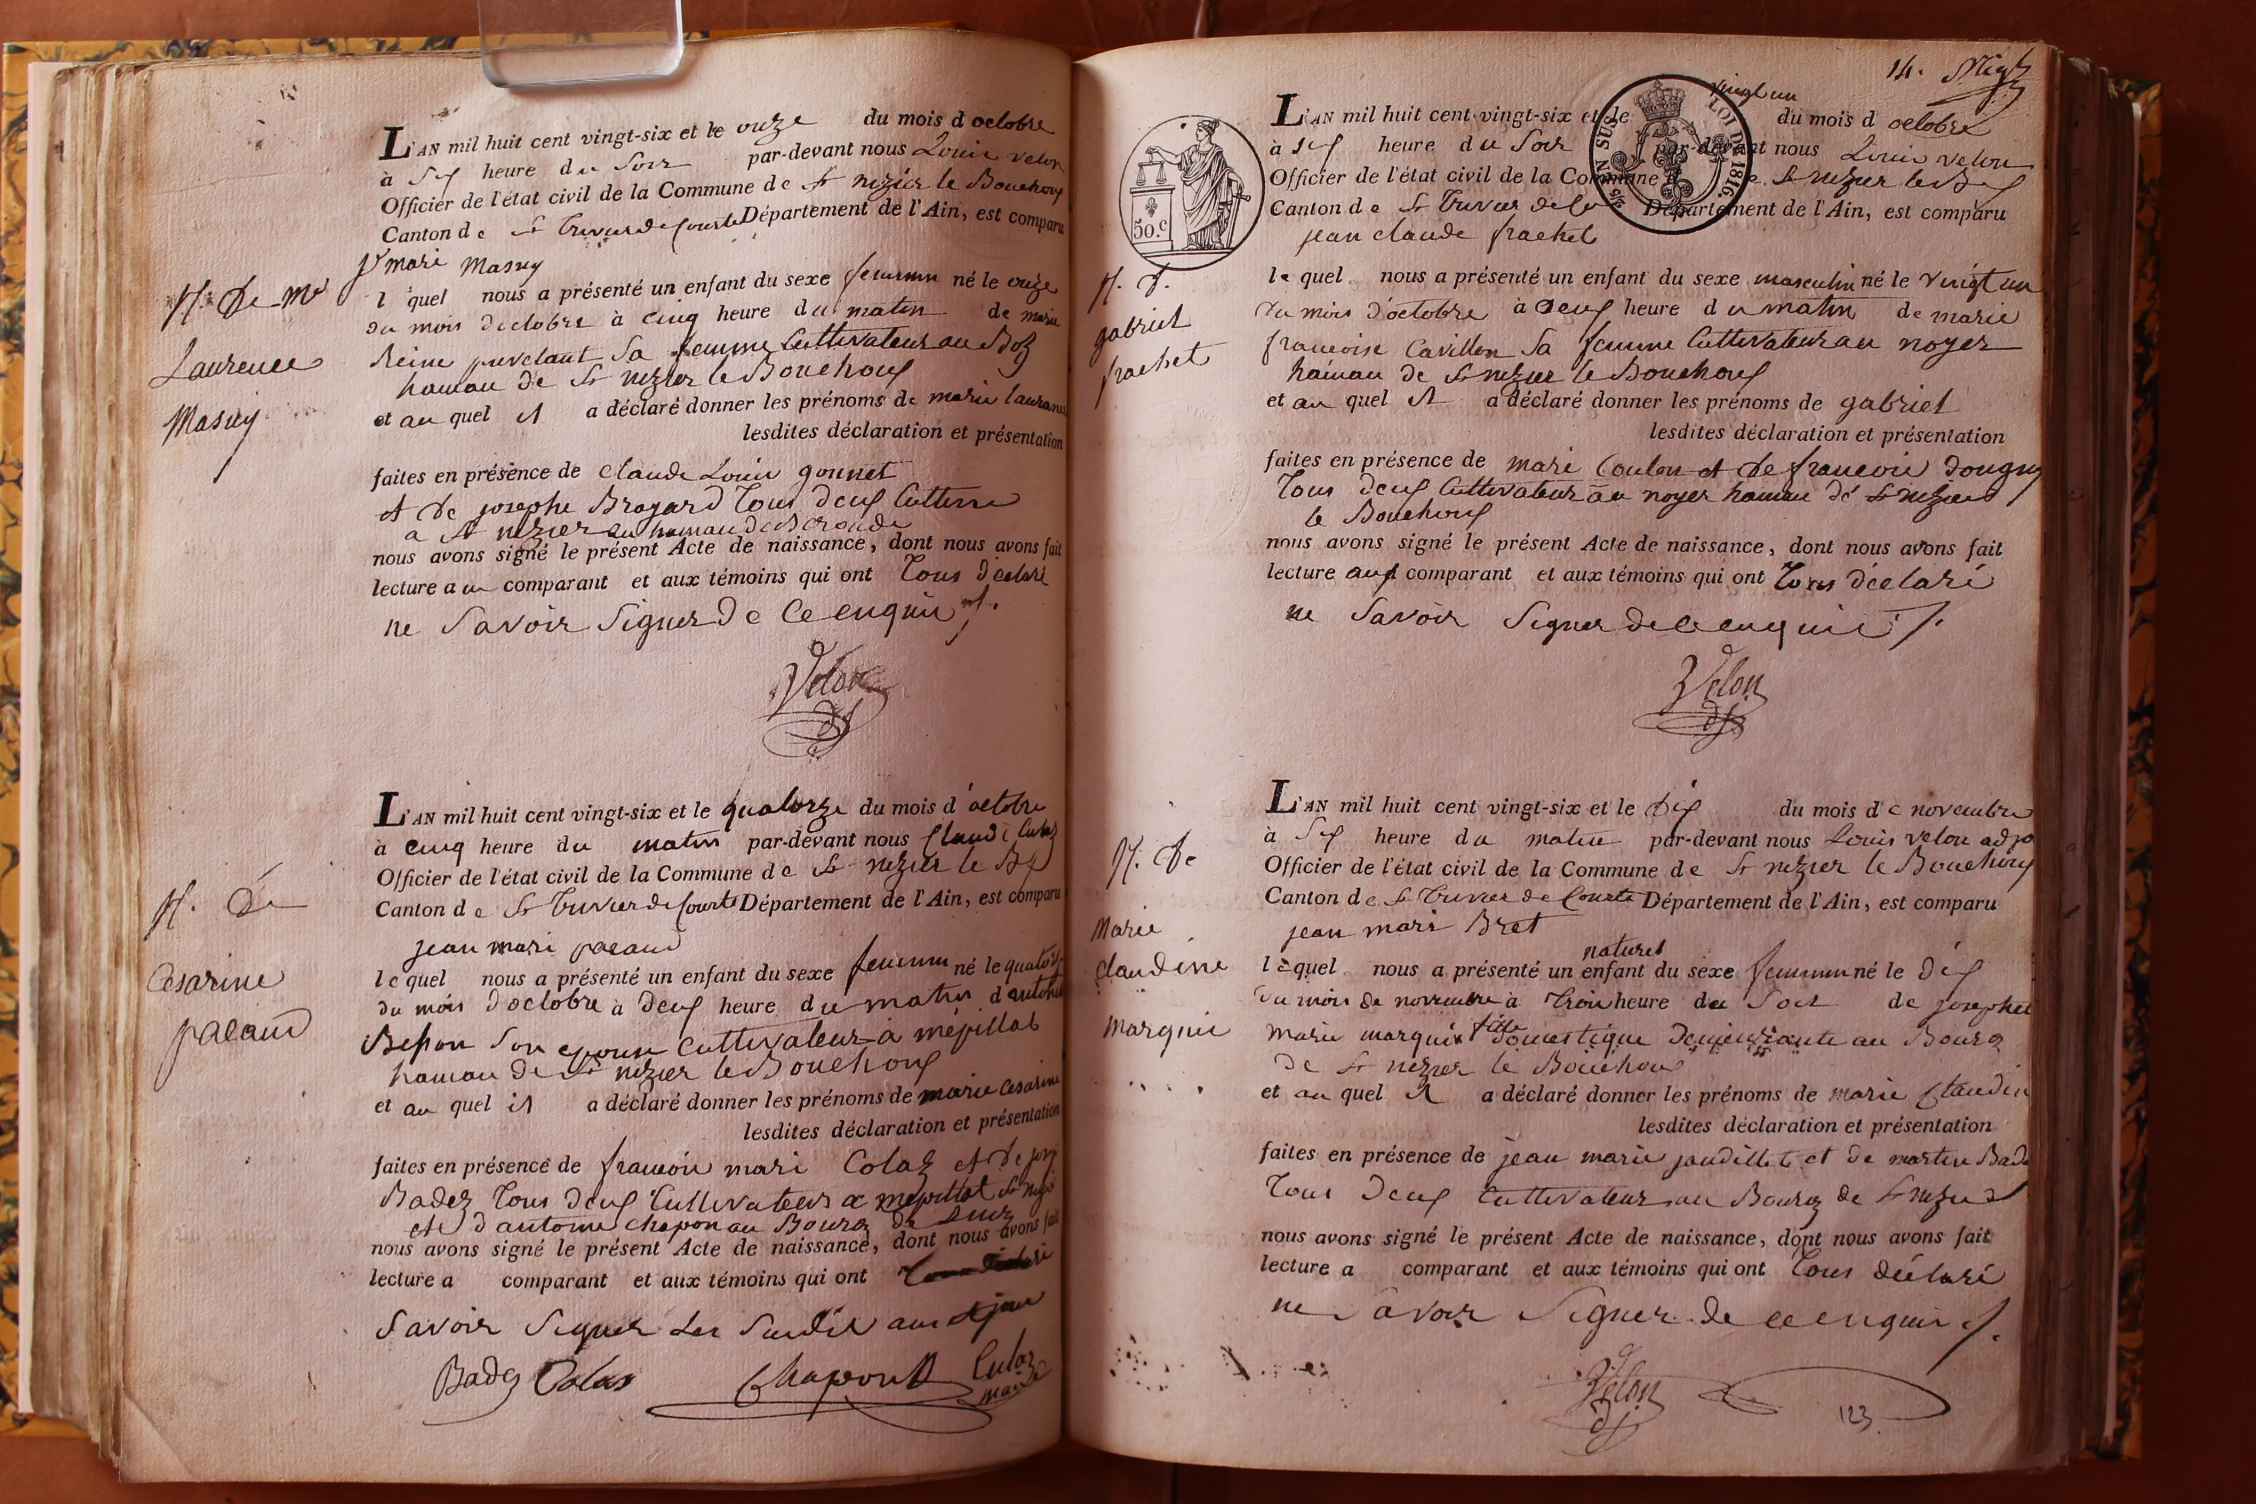 L'AN mil huit cent vingt-six et le onze du mois d octobre
à six heure du soir par-devant nous Louis velon
Officier de l'état civil de la Commune de St nizier le Bouchoux
Canton de St Trivier de Courtes Département de l'Ain, est comparu
jh mari Masuy
l quel nous a présenté un enfant du sexe feminin né le onze
du mois doctobre à cinq heure du matin de marie
Reine sa femme Cultivateur au
hamau de St nizier le Bouchoux
et au quel il a déclaré donner les prénoms de marie laurance
lesdites déclaration et présentation
faites en présence de claude Louis gonnet
et de josephe Brayard tous deux
a St nizier au hamau de
nous avons signé le présent Acte de naissance, dont nous avons fait
lecture au comparant et aux témoins qui ont tous déclaré
ne savoir signer de ce enquis
Velon
N. de Me
Laurence
Masuy
L'AN mil huit cent vingt-six et le quatorze du mois d'octobre
à cinq heure du matin par-devant nous Claude Culaz
Officier de l'état civil de la Commune de St nizier le Bx
Canton de St Trivier de Courtes Département de l'Ain, est comparu
jean mari pacaud
lequel nous a présenté un enfant du sexe feminin né le quatorze
du mois d'octobre à deux heure du matin d'antoinette
Besson son epouse cultivateur à mépillat
hamau de St nizier le Bouchoux
et au quel il a déclaré donner les prénoms de marie Cesarine
lesdites déclaration et présentation
faites en présence de francois mari Colaz et de
Badez tous deux Cultivateurs a mépillat St nizier
et d antoine chapon au Bourg de
nous avons signé le présent Acte de naissance, dont nous avons fait
lecture a comparant et aux témoins qui ont
savoir signer
Badez Colas Chapon Culaz
maire
N. de
Cesarine
pacaud
14.
L'AN mil huit cent vingt-six et le vingt un du mois d octobre
à six heure du soir par-devant nous Louis velon
Officier de l'état civil de la Commune de St nizier le Bx
Canton de St Trivier de Département de l'Ain, est comparu
jean claude frachet
50.c
LOI DE 1816.
le quel nous a présenté un enfant du sexe masculin né le vingt un
du mois d'octobre à deux heure du matin de marie
francoise Cavillon sa femme Cultivateur au noyer
hamau de St nizier le Bouchoux
et au quel il a déclaré donner les prénoms de gabriel
lesdites déclaration et présentation
faites en présence de mari Coulon et de francois Dougny
tous deux Cultivateur au noyer hamau de St nizier
le Bouchoux
nous avons signé le présent Acte de naissance, dont nous avons fait
lecture aux comparant et aux témoins qui ont tous déclaré
ne savoir signer de ce enquis
Velon
gabriel
frachet
L'AN mil huit cent vingt-six et le dix du mois de novembre
à six heure du matin par-devant nous Louis velon adjo
Officier de l'état civil de la Commune de St nizier le Bouchoux
Canton de St Trivier de Courtes Département de l'Ain, est comparu
jean mari Bret
lequel nous a présenté un enfant naturel du sexe feminin né le dix
du mois de novembre à trois heure du soir de josephet
marie marquis fille domestique demeurante au Bourg
de St nizier le Bouchoux
et au quel il a déclaré donner les prénoms de marie Claudin
lesdites déclaration et présentation
faites en présence de jean marie jaudillet et de martin Bade
tous deux Cultivateur au Bourg de St nizier
nous avons signé le présent Acte de naissance, dont nous avons fait
lecture a comparant et aux témoins qui ont tous déclaré
ne savoir signer de ce enquis
Velon
123
N. de
Marie
Claudine
Marquis